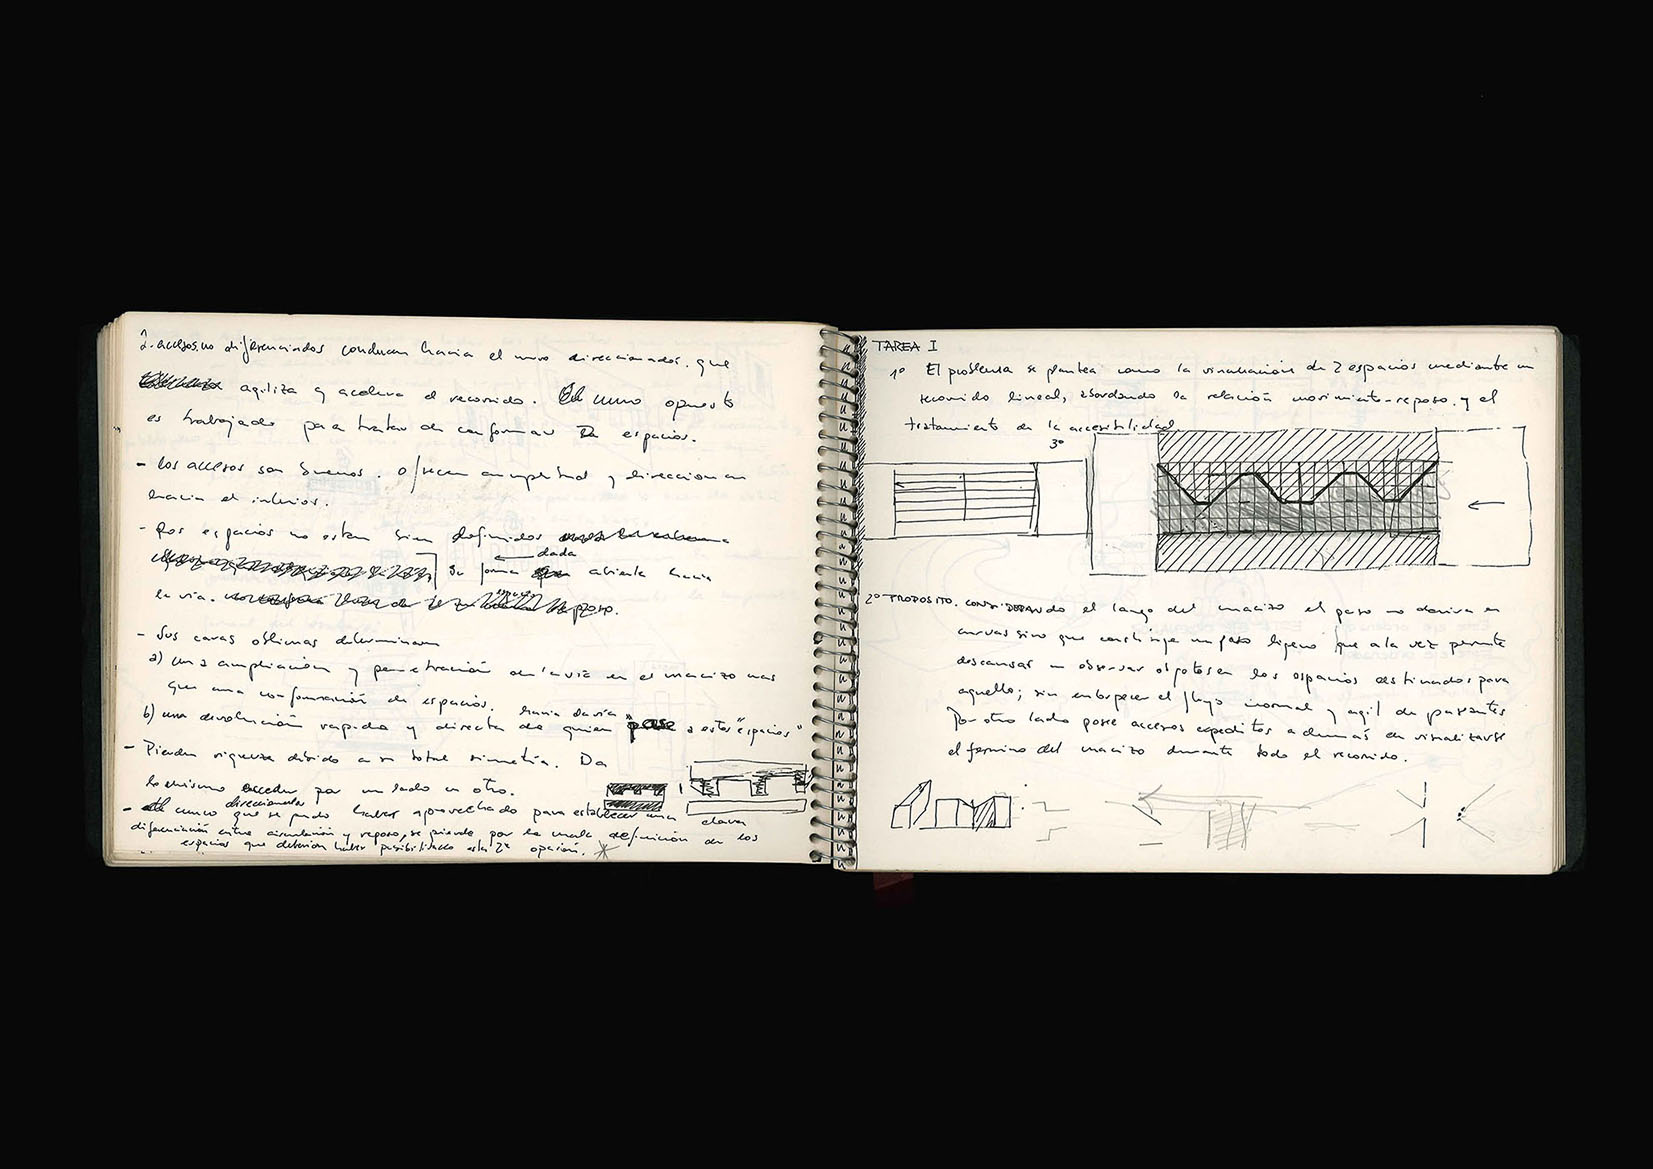 2 accesos no diferenciados conducen hacia el muro direccionador, que
agiliza y acelera el recorrido. El muro opuesto
es trabajado para tratar de conformar espacios.
- Los accesos son buenos. Ofrecen amplitud y direccionan
hacia el interior.
- Los espacios no estan bien definidos
dada
su forma abierta hacia
la via.
- Sus caras oblicuas determinan
a) una ampliación y penetración de la via en el macizo mas
que una conformación de espacios.
hacia la via
b) una devolución rapida y directa de quien pase a estos "espacios"
- Pierden riqueza debido a su total simetría. Da
lo mismo acceder por un lado u otro.
direccionador
- El muro que se pudo haber aprovechado para establecer una clara
diferenciación entre circulación y reposo, se pierde por la mala definición de los
espacios que debieron haber posibilitado esta 2ª opción.
TAREA I
1º El problema se plantea como la vinculación de 2 espacios mediante un
recorrido lineal, abordando la relación movimiento-reposo. y el
tratamiento de la accesibilidad.
3º
2º PROPOSITO. CONSIDERANdo el largo del macizo el paso no deriva en
curvas sino que constituye un paso ligero que a la vez permite
descansar u observar objetos en los espacios destinados para
aquello; sin entorpecer el flujo normal y agil de pasantes
Por otro lado posee accesos expeditos ademas de visualizarse
el termino del macizo durante todo el recorrido.